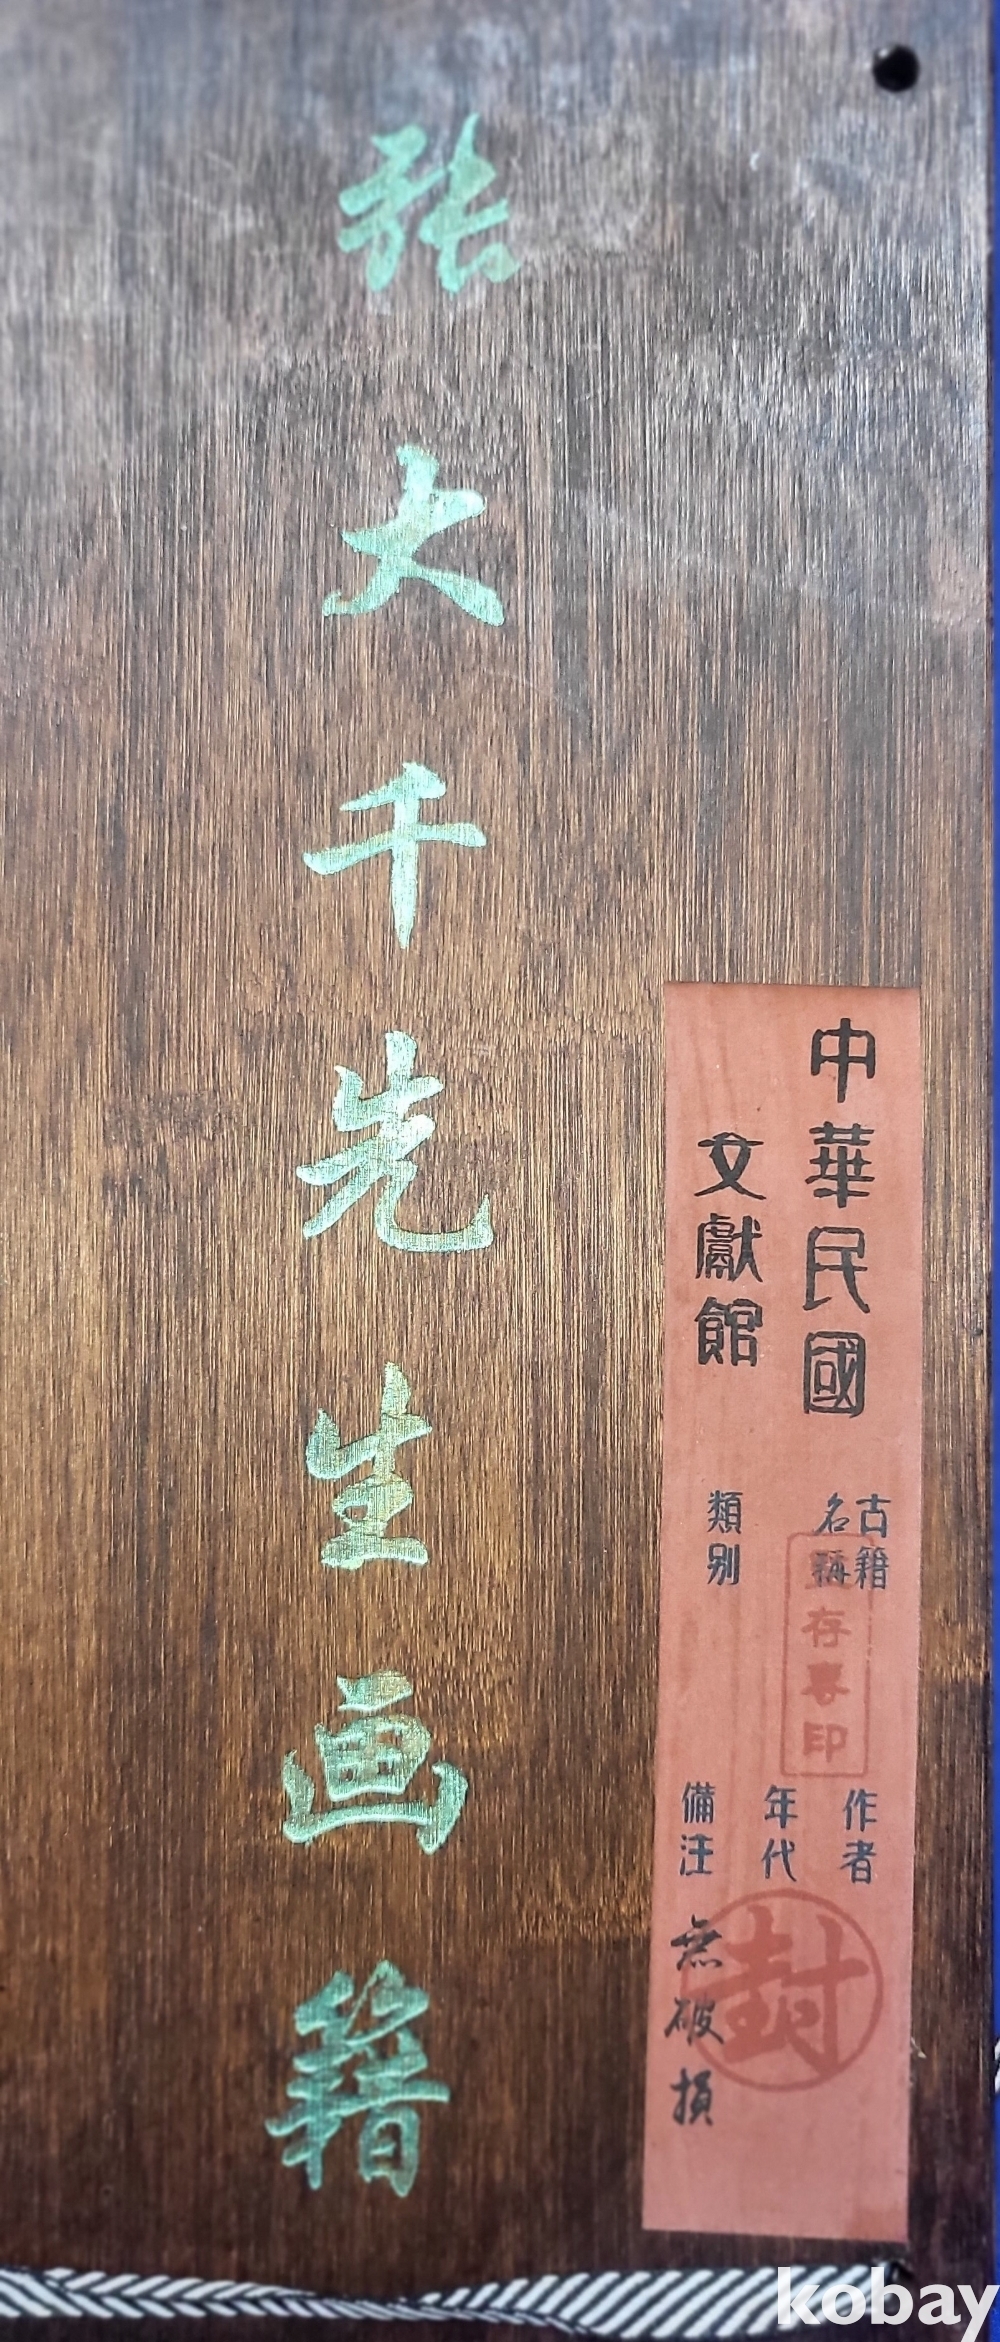 张大千先生画籍
中華民國
文獻館
古籍
名稱
類别
存
印
作者
年代
備注
無破損
封
kobay